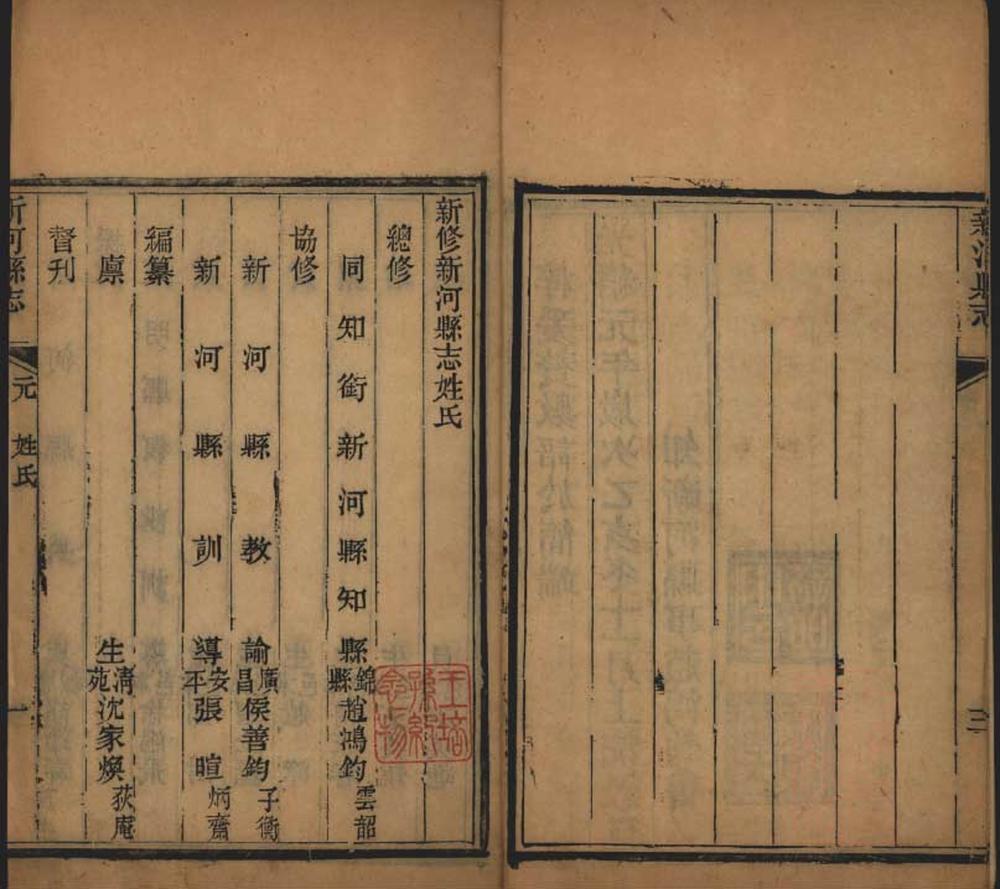 新河縣志
三
新修新河縣志姓氏
總修
同知銜新河縣知縣錦縣趙鴻鈞雲韶
協修
新河縣教諭廣昌侯善鈞子衡
新河縣訓導安平張暄炳齋
編纂
廪生清苑沈家煥荻庵
督刊
新河縣志 元 姓氏 一